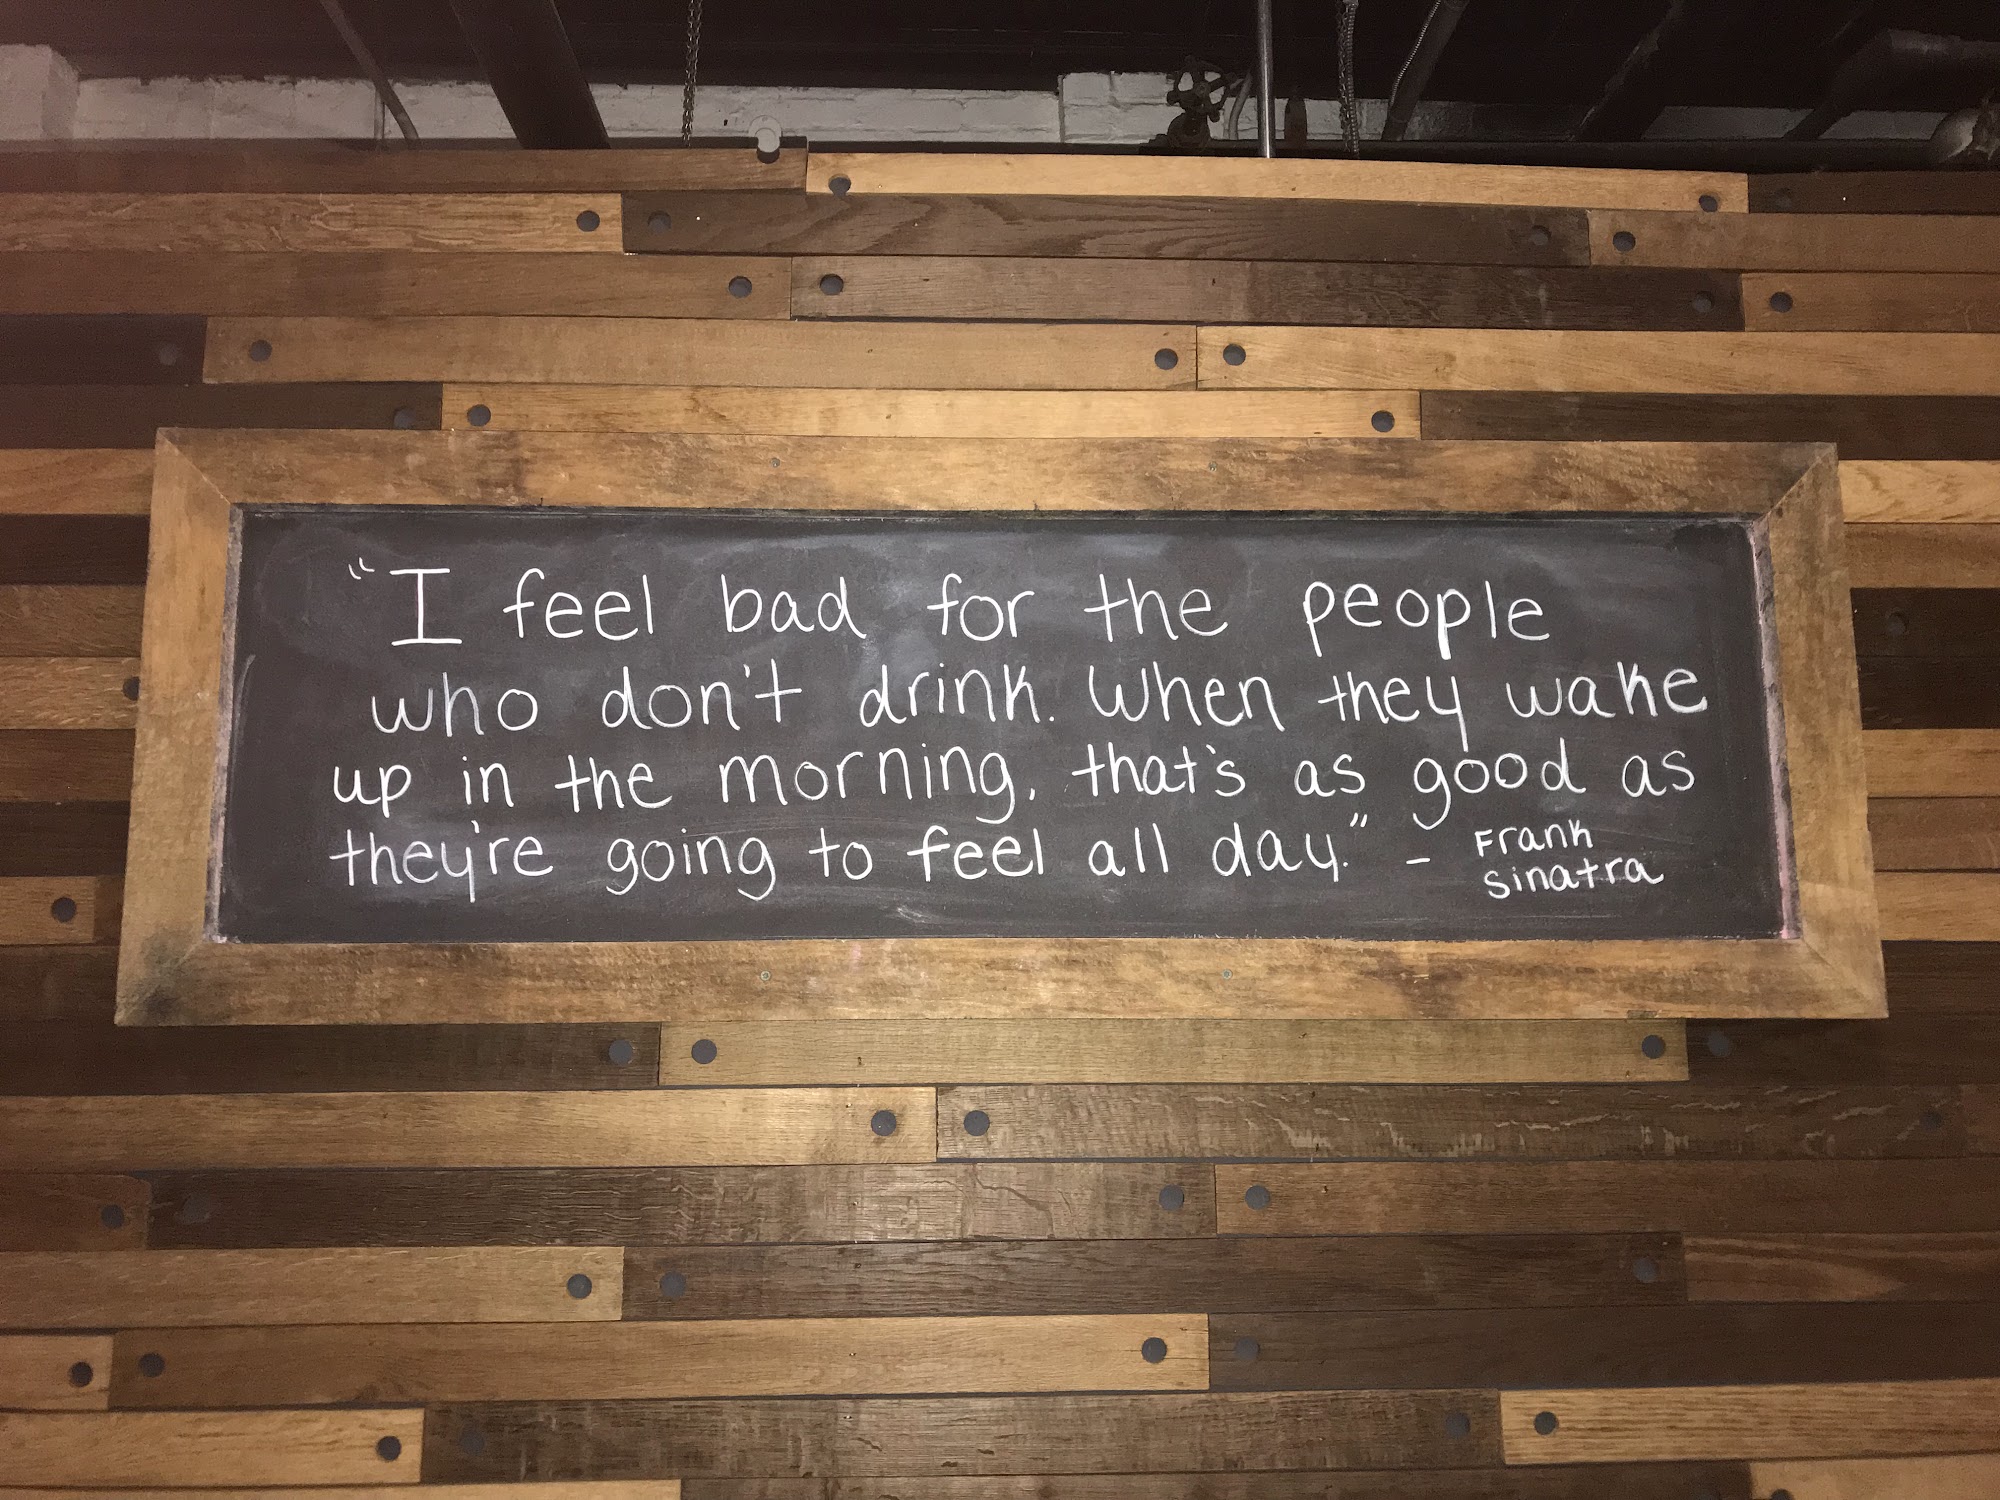 "I feel bad for the people
who don't drink. When they wake
up in the morning, that's as good as
they're going to feel all day." - Frank
Sinatra